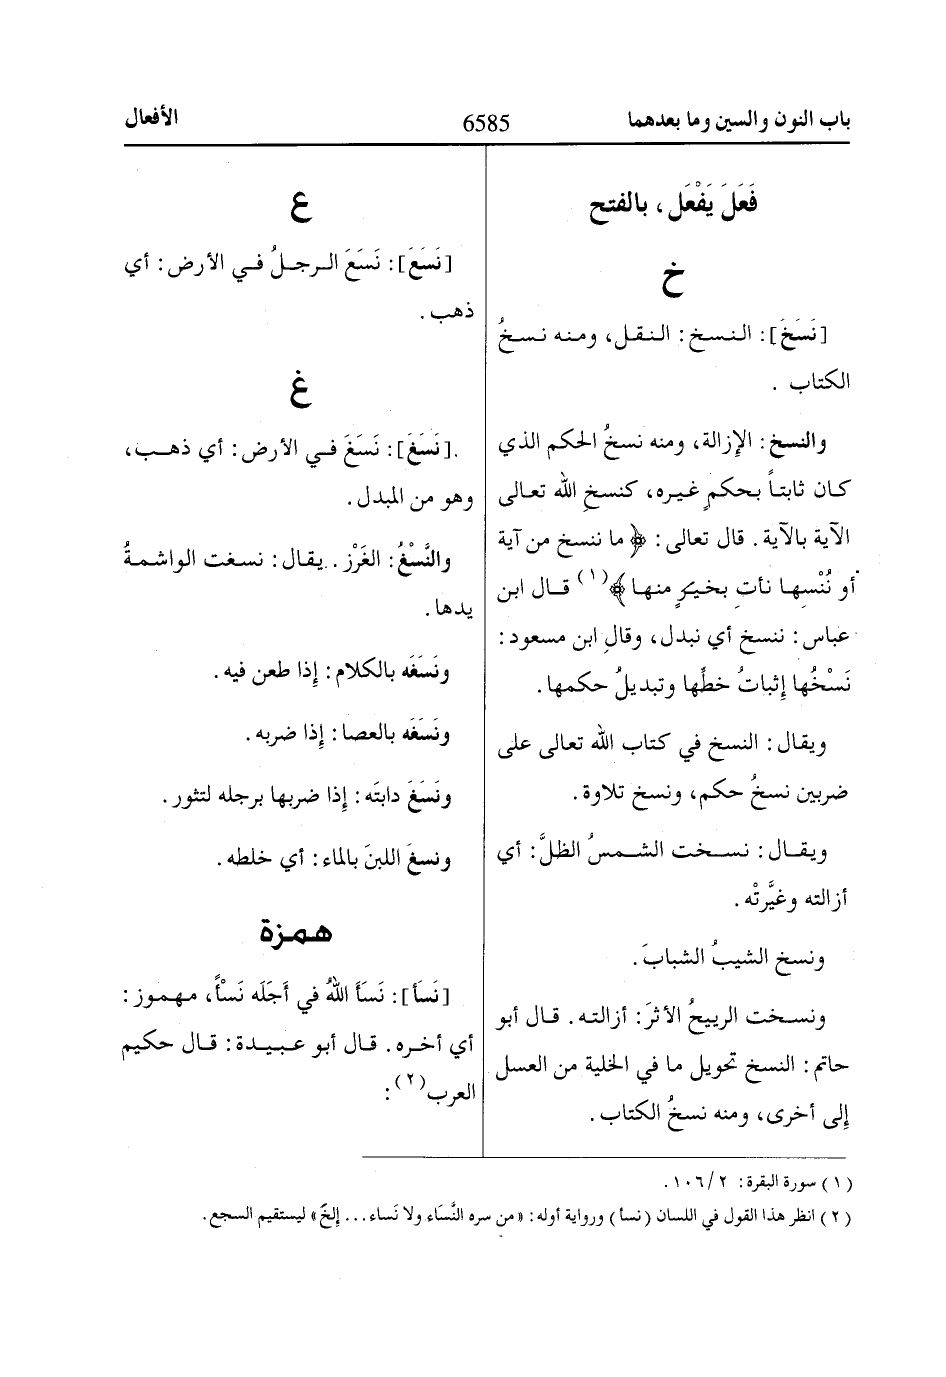 باب النون والسين وما بعدهما 6585 الأفعال
فَعَلَ يَفْعَل، بالفتح
خ
[نَسَخَ]: النسخ: النقل، ومنه نسخُ
الكتاب .
والنسخ: الإزالة، ومنه نسخُ الحكم الذي
كان ثابتاً بحكمٍ غيره، كنسخِ الله تعالى
الآية بالآية. قال تعالى: ﴿ما ننسخ من آية
أو نُنْسِها نأتِ بخيرٍ منها﴾(١) قال ابن
عباس: ننسخ أي نبدل، وقال ابن مسعود:
نَسْخُها إِثباتُ خطِّها وتبديلُ حكمها.
ويقال: النسخ في كتاب الله تعالى على
ضربين نسخُ حكم، ونسخ تلاوة.
ويقال: نسخت الشمسُ الظلَّ: أي
أزالته وغيَّرتْه.
ونسخ الشيبُ الشبابَ.
ونسخت الريحُ الأثرَ: أزالته. قال أبو
حاتم: النسخ تحويل ما في الخلية من العسل
إلى أخرى، ومنه نسخُ الكتاب.
ع
[نَسَعَ]: نَسَعَ الرجلُ في الأرض: أي
ذهب.
غ
[نَسَغَ]: نَسَغَ في الأرض: أي ذهب،
وهو من المبدل.
والنَّسْغُ: الغَرْز. يقال: نسغت الواشمةُ
يدها.
ونَسَغَه بالكلام: إذا طعن فيه.
ونَسَغَه بالعصا: إذا ضربه.
ونَسَغَ دابتَه: إذا ضربها برجله لتثور.
ونسغَ اللبنَ بالماء: أي خلطه.
همزة
[نَسَأ]: نَسَأ اللهُ في أَجَلَه نَسْأً، مهموز:
أي أخره. قال أبو عبيدة: قال حكيم
العرب(٢):
(١) سورة البقرة: ٢/ ١٠٦.
(٢) انظر هذا القول في اللسان (نسأ) ورواية أوله: «من سره النَّسَاء ولا نَساء... إلخ» ليستقيم السجع.